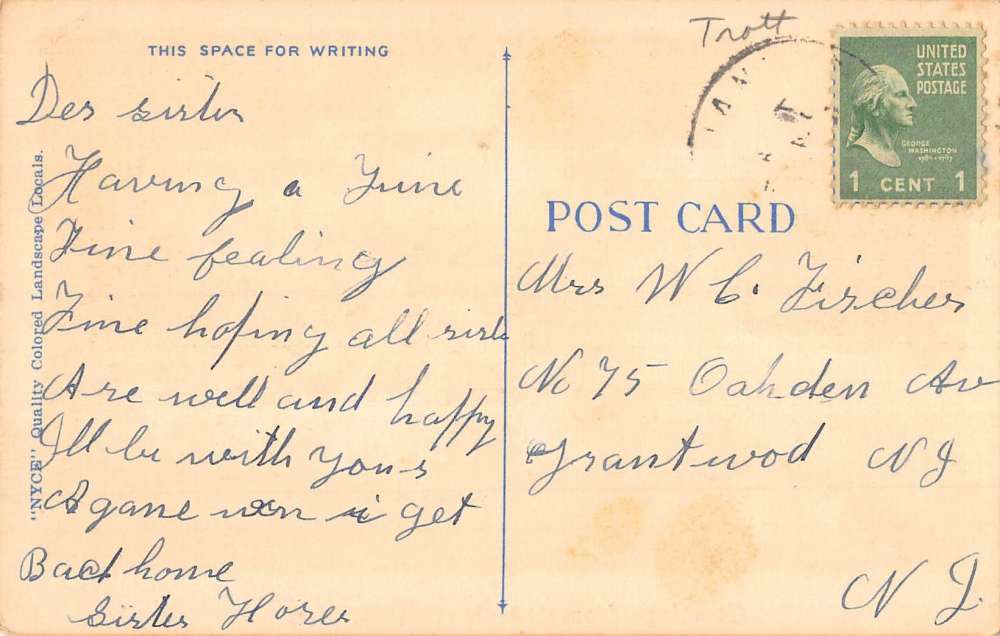 THIS SPACE FOR WRITING
Der sister
Having a Fine
Fine fealing
Fine hoping all
Are well and happy
Ill be with yours
Agane wen i get
Back home
Sister
"NYCE" Quality Colored Landscape Locals.
Trott
UNITED
STATES
POSTAGE
GEORGE
WASHINGTON
1 CENT 1
POST CARD
Mrs W C. Fischer
No 75 Oakden Av
Grantwod NJ
N J.